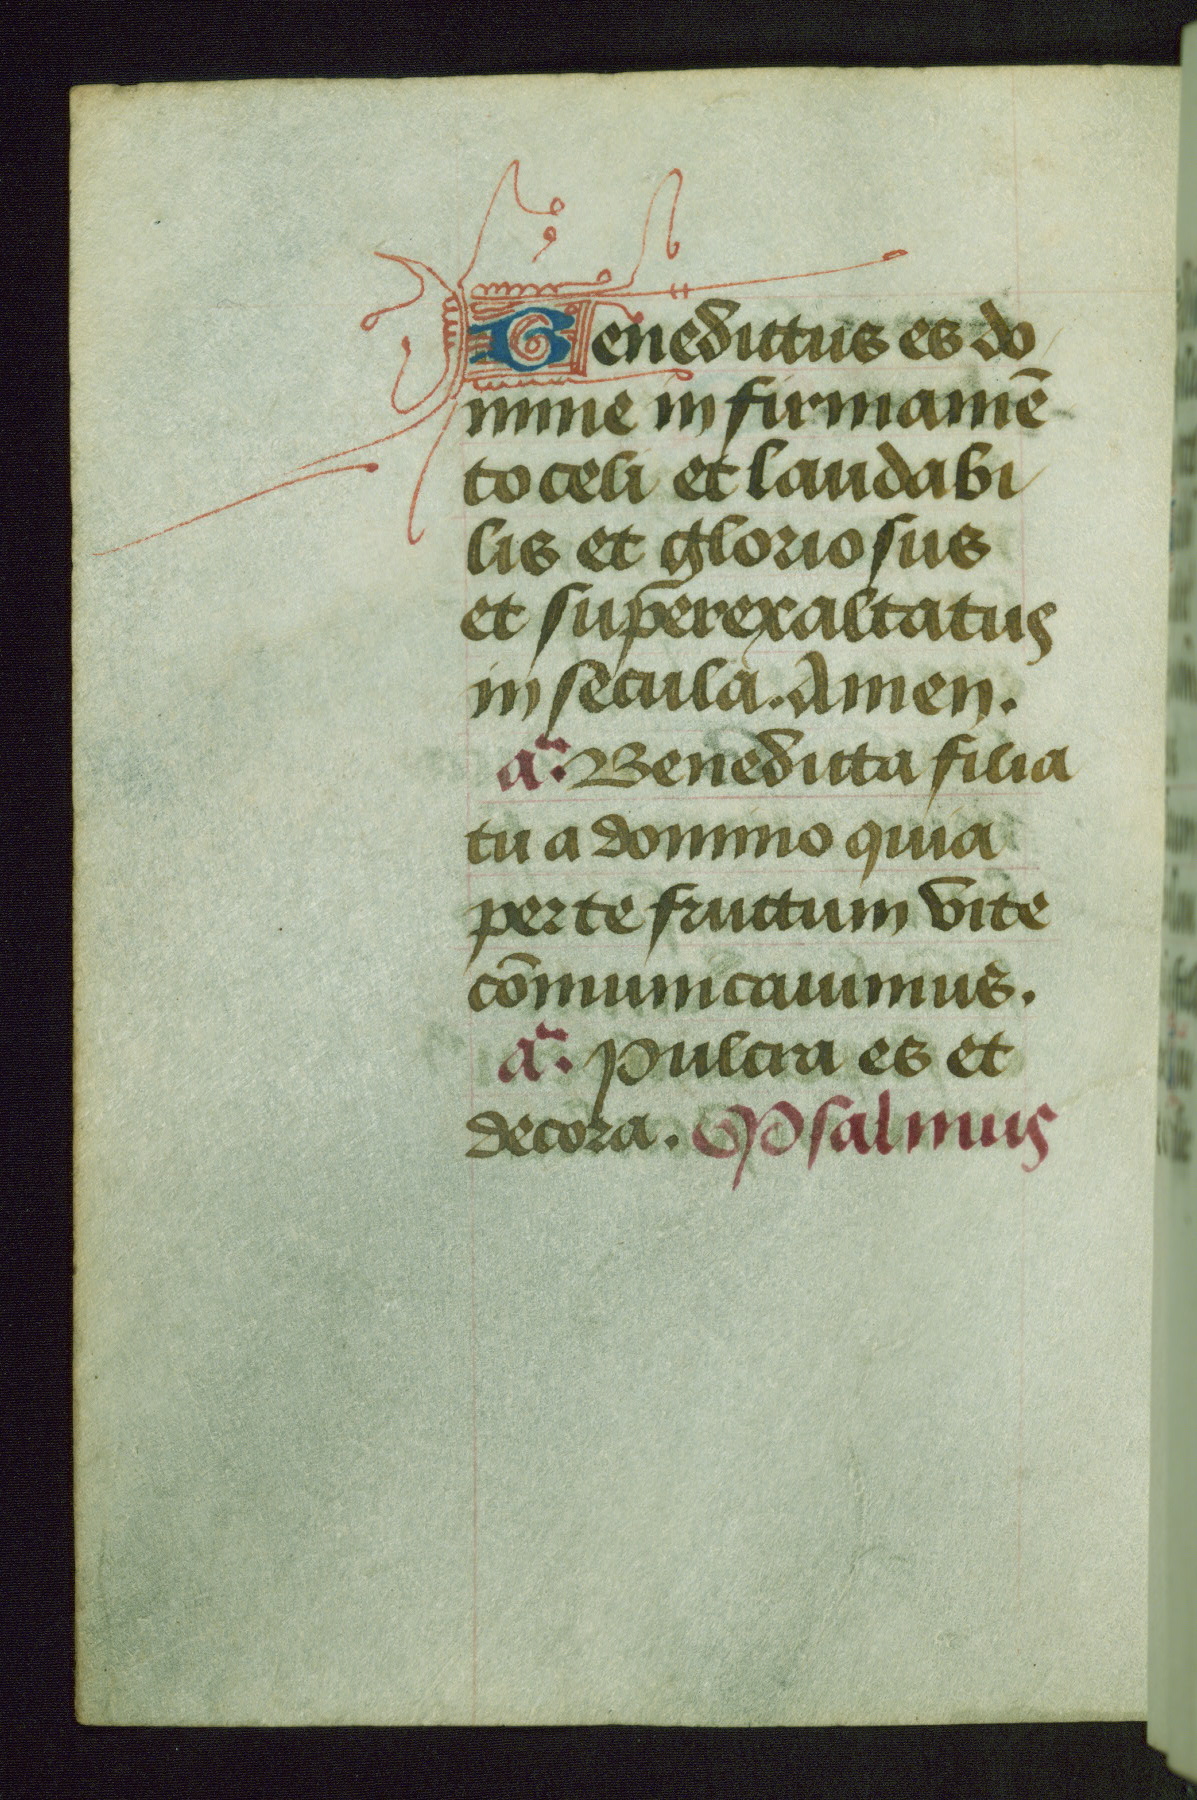 Benedictus es do
mine in firmamē
to celi et laudabi
lis et gloriosus
et sup̄erexaltatus
in secula. Amen.
añ. Benedicta filia
tu a domino quia
per te fructum vite
cōmunicauimus.
añ. Pulcra es et
decora. Psalmus